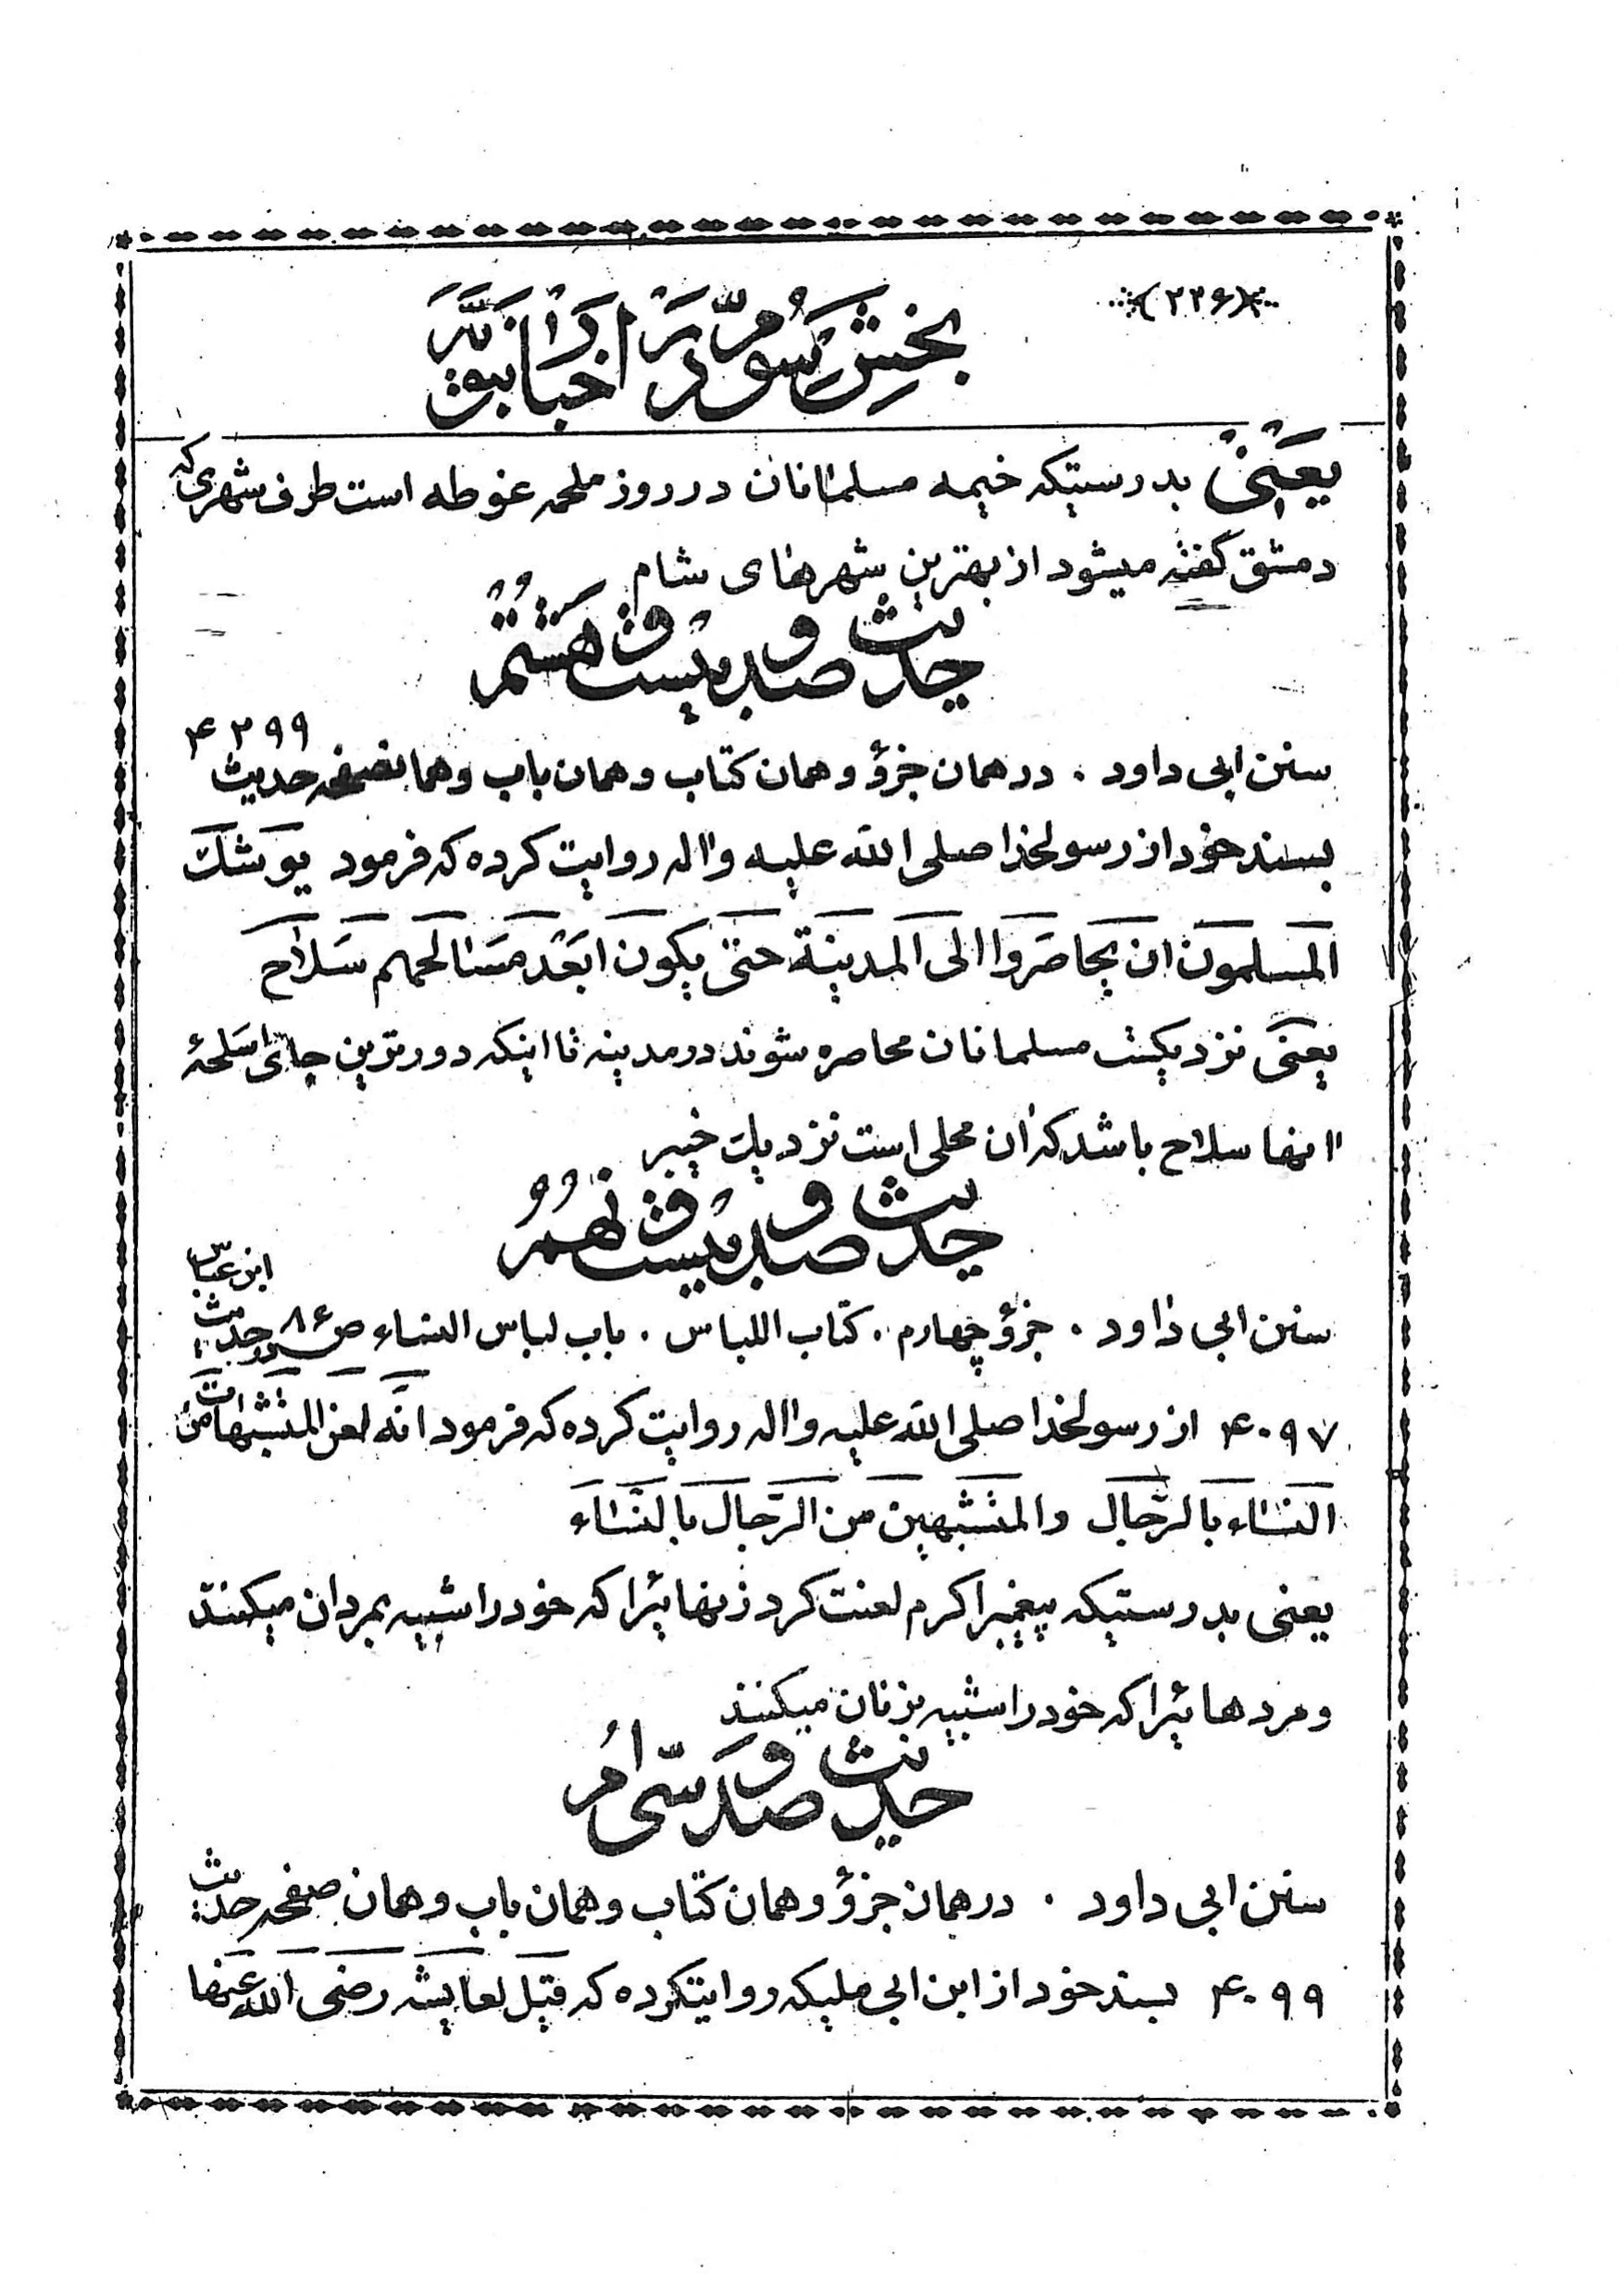 (۲۲۶)
بخش سوم در اخبار نبویه
یعنی بدرستیکه خیمه مسلمانان در روز ملحمه غوطه است طرف شهری که
دمشق گفته میشود از بهترین شهرهای شام
حدیث صد و بیست و هشتم
سنن ابی داود . در همان جزؤ و همان کتاب و همان باب و همانصفحه حدیث ۴۲۹۹
بسند خود از رسولخدا صلی الله علیه واله روایت کرده که فرمود یوشک
المسلمون ان یحاصروا الی المدینة حتی یکون ابعد مسالحهم سلاح
یعنی نزدیکست مسلمانان محاصره شوند در مدینه تا اینکه دورترین جای اسلحهٔ
انها سلاح باشد که ان محلی است نزدیک خیبر
حدیث صد و بیست و نهم
سنن ابی داود . جزؤ چهارم . کتاب اللباس . باب لباس النساء ص ۸۶ در حدیث ابن عباس
۴۰۹۷ از رسولخدا صلی الله علیه واله روایت کرده که فرمود انه لعن المتشبهات من
النساء بالرجال والمتشبهین من الرجال بالنساء
یعنی بدرستیکه پیغمبر اکرم لعنت کرد زنهائیرا که خود را شبیه بمردان میکنند
و مردهائیرا که خود را شبیه بزنان میکنند
حدیث صد و سی ام
سنن ابی داود . در همان جزؤ و همان کتاب و همان باب و همان صفحه حدیث
۴۰۹۹ بسند خود از ابن ابی ملیکه روایتکرده که قیل لعایشه رضی الله عنها